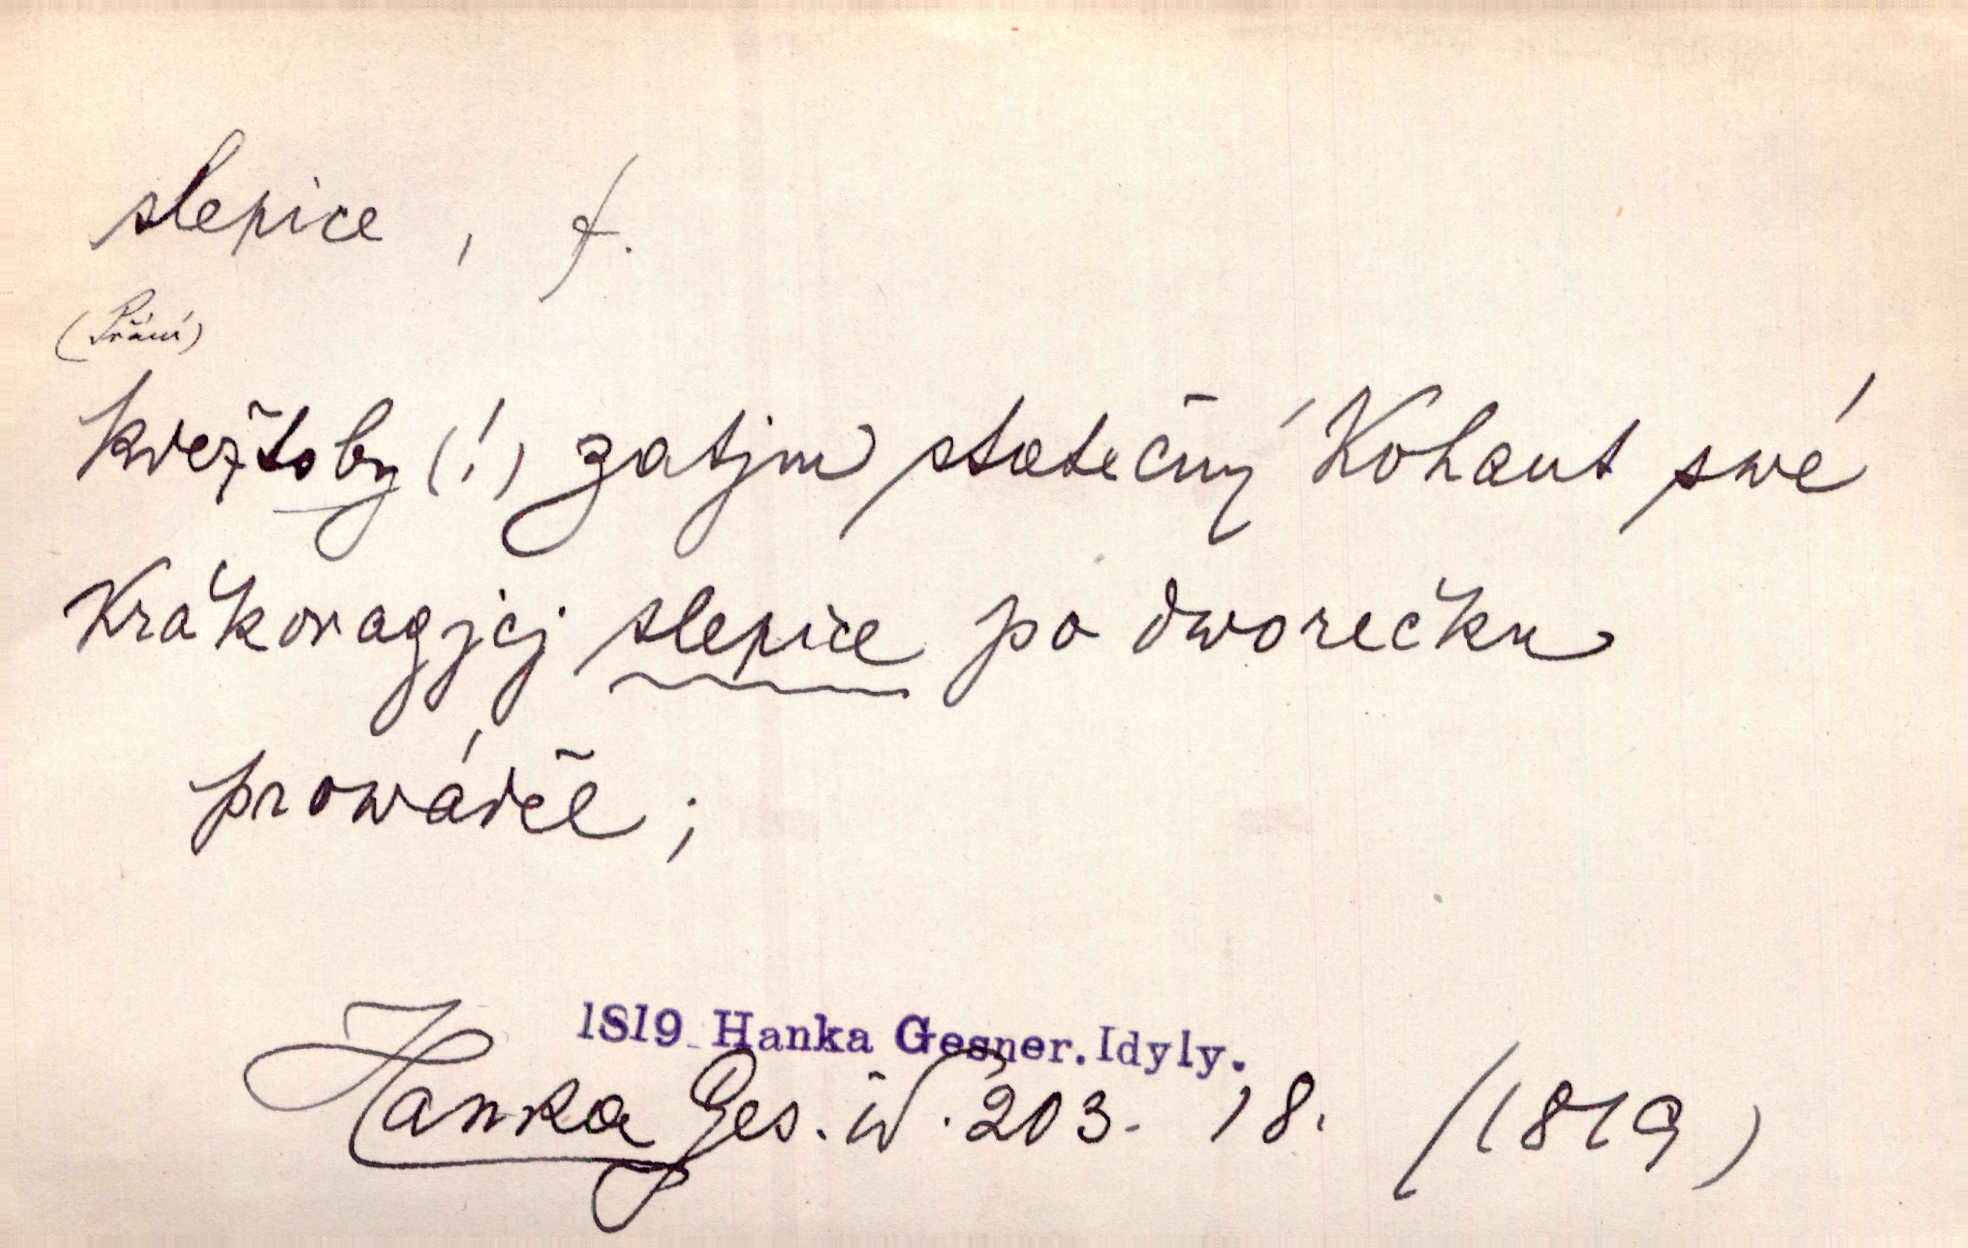 slepice, f.
(Přání)
kdežtoby (!) zatjm statečný Kohaut swé
Krákoragjcj slepice po dworečku
prowáděl;
1819 Hanka Gesner. Idyly.
Hanka Ges. id. 203. 18. (1819)